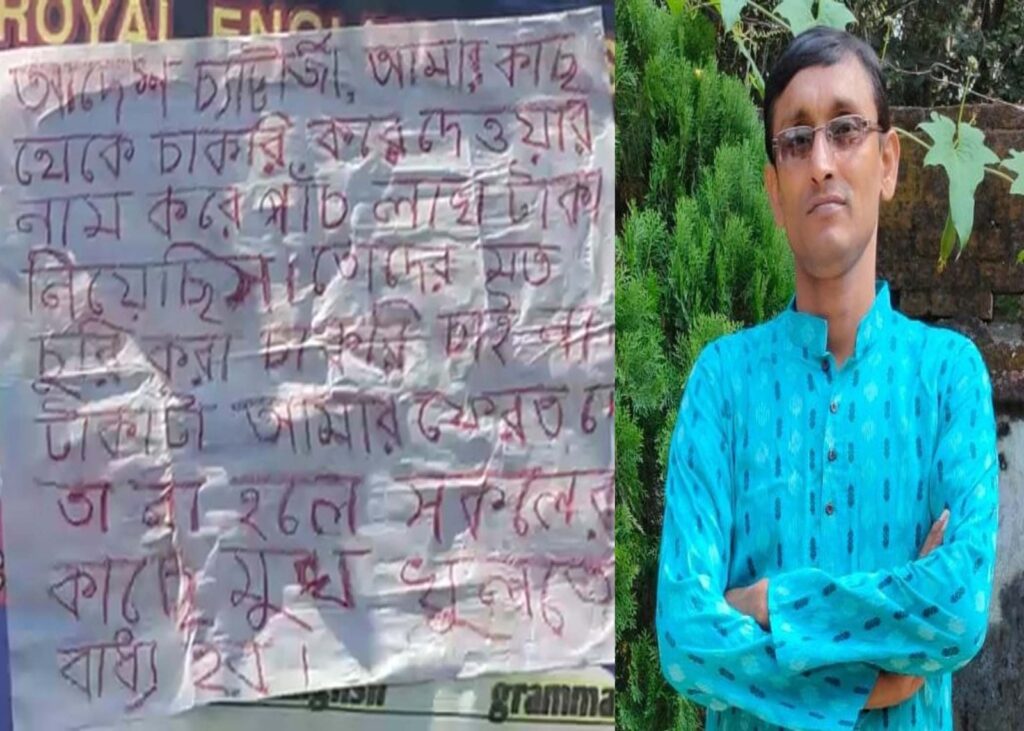 ROYAL ENGL
আদেশ চ্যাটার্জী, আমার কাছ
থেকে চাকরি করে দেওয়ার
নাম করে পাঁচ লাখ টাকা
নিয়েছিস। তোদের মত
চুরি করা চাকরি চাই না
টাকাটা আমার ফেরত দে
তা না হলে সকলের
কাছে মুখ খুলতে
বাধ্য হব।
english
gramma